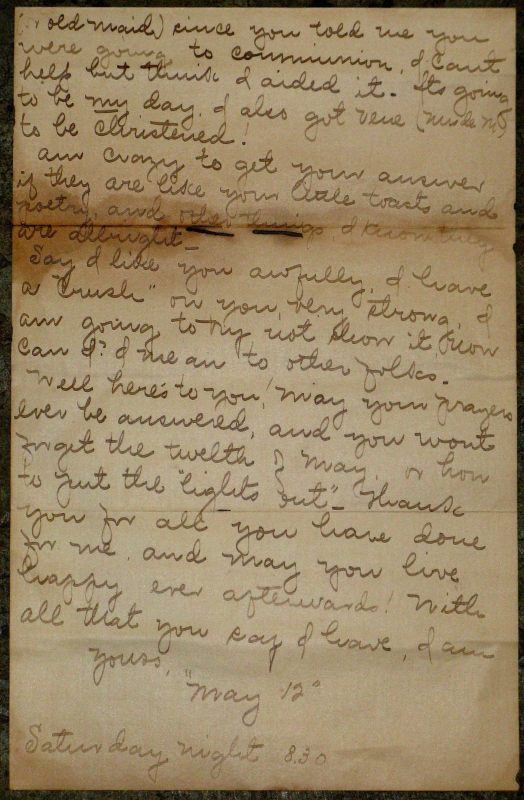 (or old maid) since you told me you
were going to communion, I can't
help but think I aided it. Its going
to be my day. I also got
to be Christened!
am crazy to get your answer
if they are like your little toasts and
poetry, and other things, I know they
are allright –
Say I like you awfully, I have
a "Crush" on you, very strong, I
am going to try not show it, How
can I? I mean to other folks.
Well here's to you! May your prayers
ever be answered, and you wont
forget the twelth of May, or how
to put the "lights out" – Thank
you for all you have done
for me, and may you live
happy ever afterwards! With
all that you say I have, I am
yours,
"May 12"
Saturday night 8.30